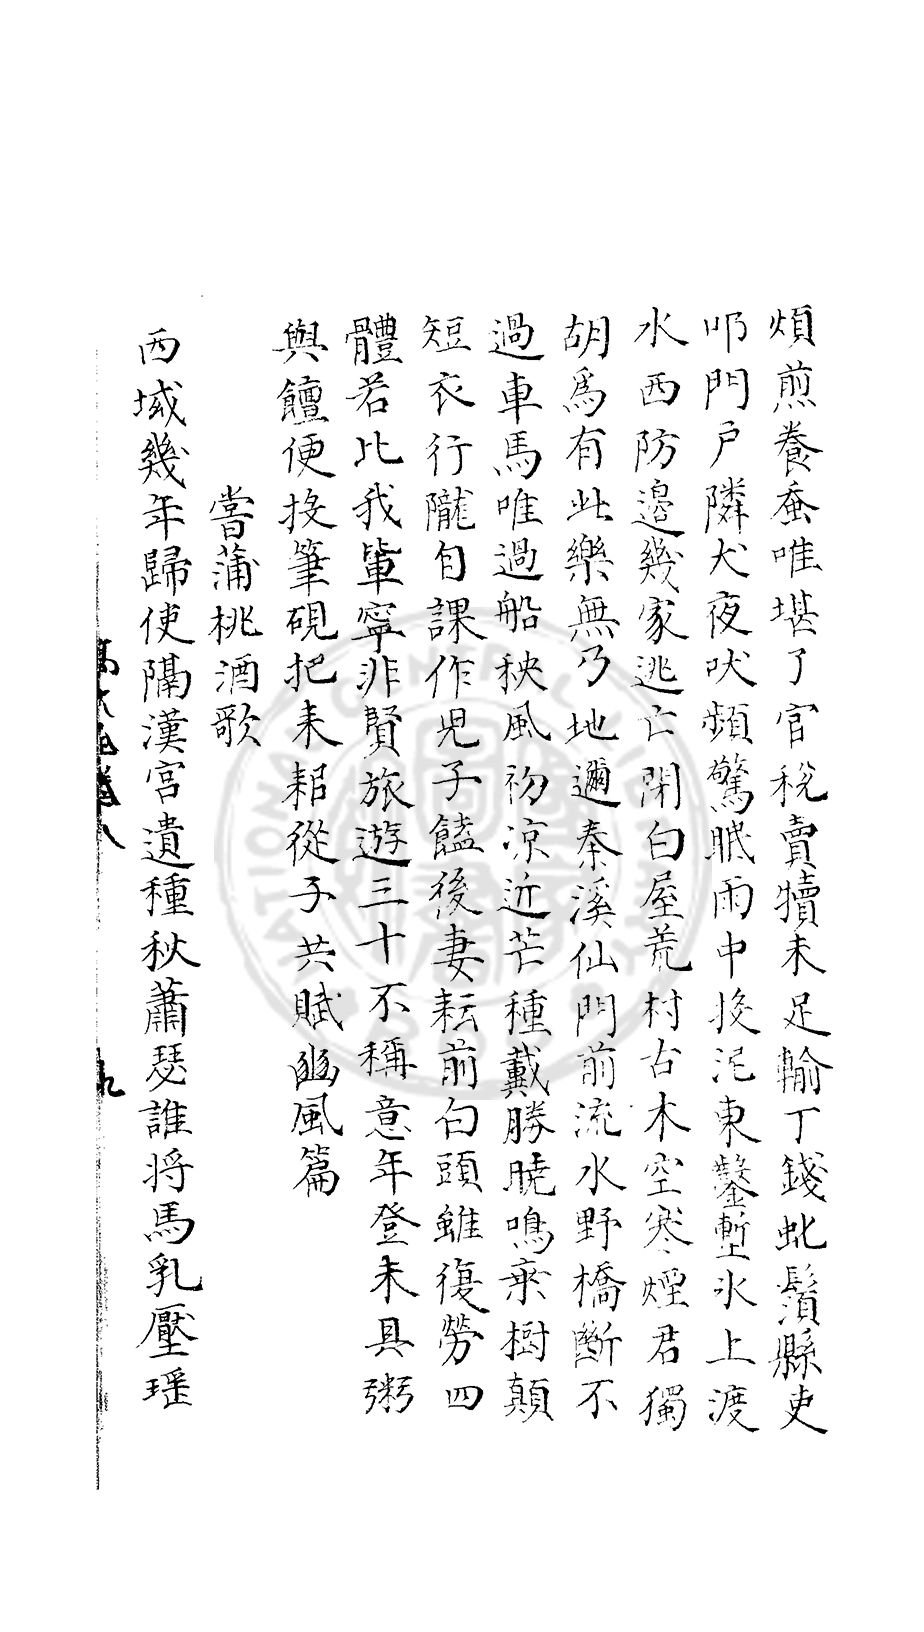 煩煎養蚕唯堪了官稅賣犢未足輸丁錢虬鬚縣吏
叩門戶隣犬夜吠頻驚眠雨中投泥東鑿塹氷上渡
水西防邊幾家逃亡閉白屋荒村古木空寒煙君獨
胡爲有此樂無乃地邇秦溪仙門前流水野橋斷不
過車馬唯過船秧風初凉近芒種戴勝曉鳴桒樹顛
短衣行隴自課作兒子饁後妻耘前白頭雖復勞四
體若比我軰寧非賢旅遊三十不稱意年登未具粥
與饘便投筆硯把耒耜從子共賦豳風篇
嘗蒲桃酒歌
西域幾年歸使隔漢宮遺種秋蕭瑟誰將馬乳壓瑶
九
NATIONAL CENTRAL LIBRARY